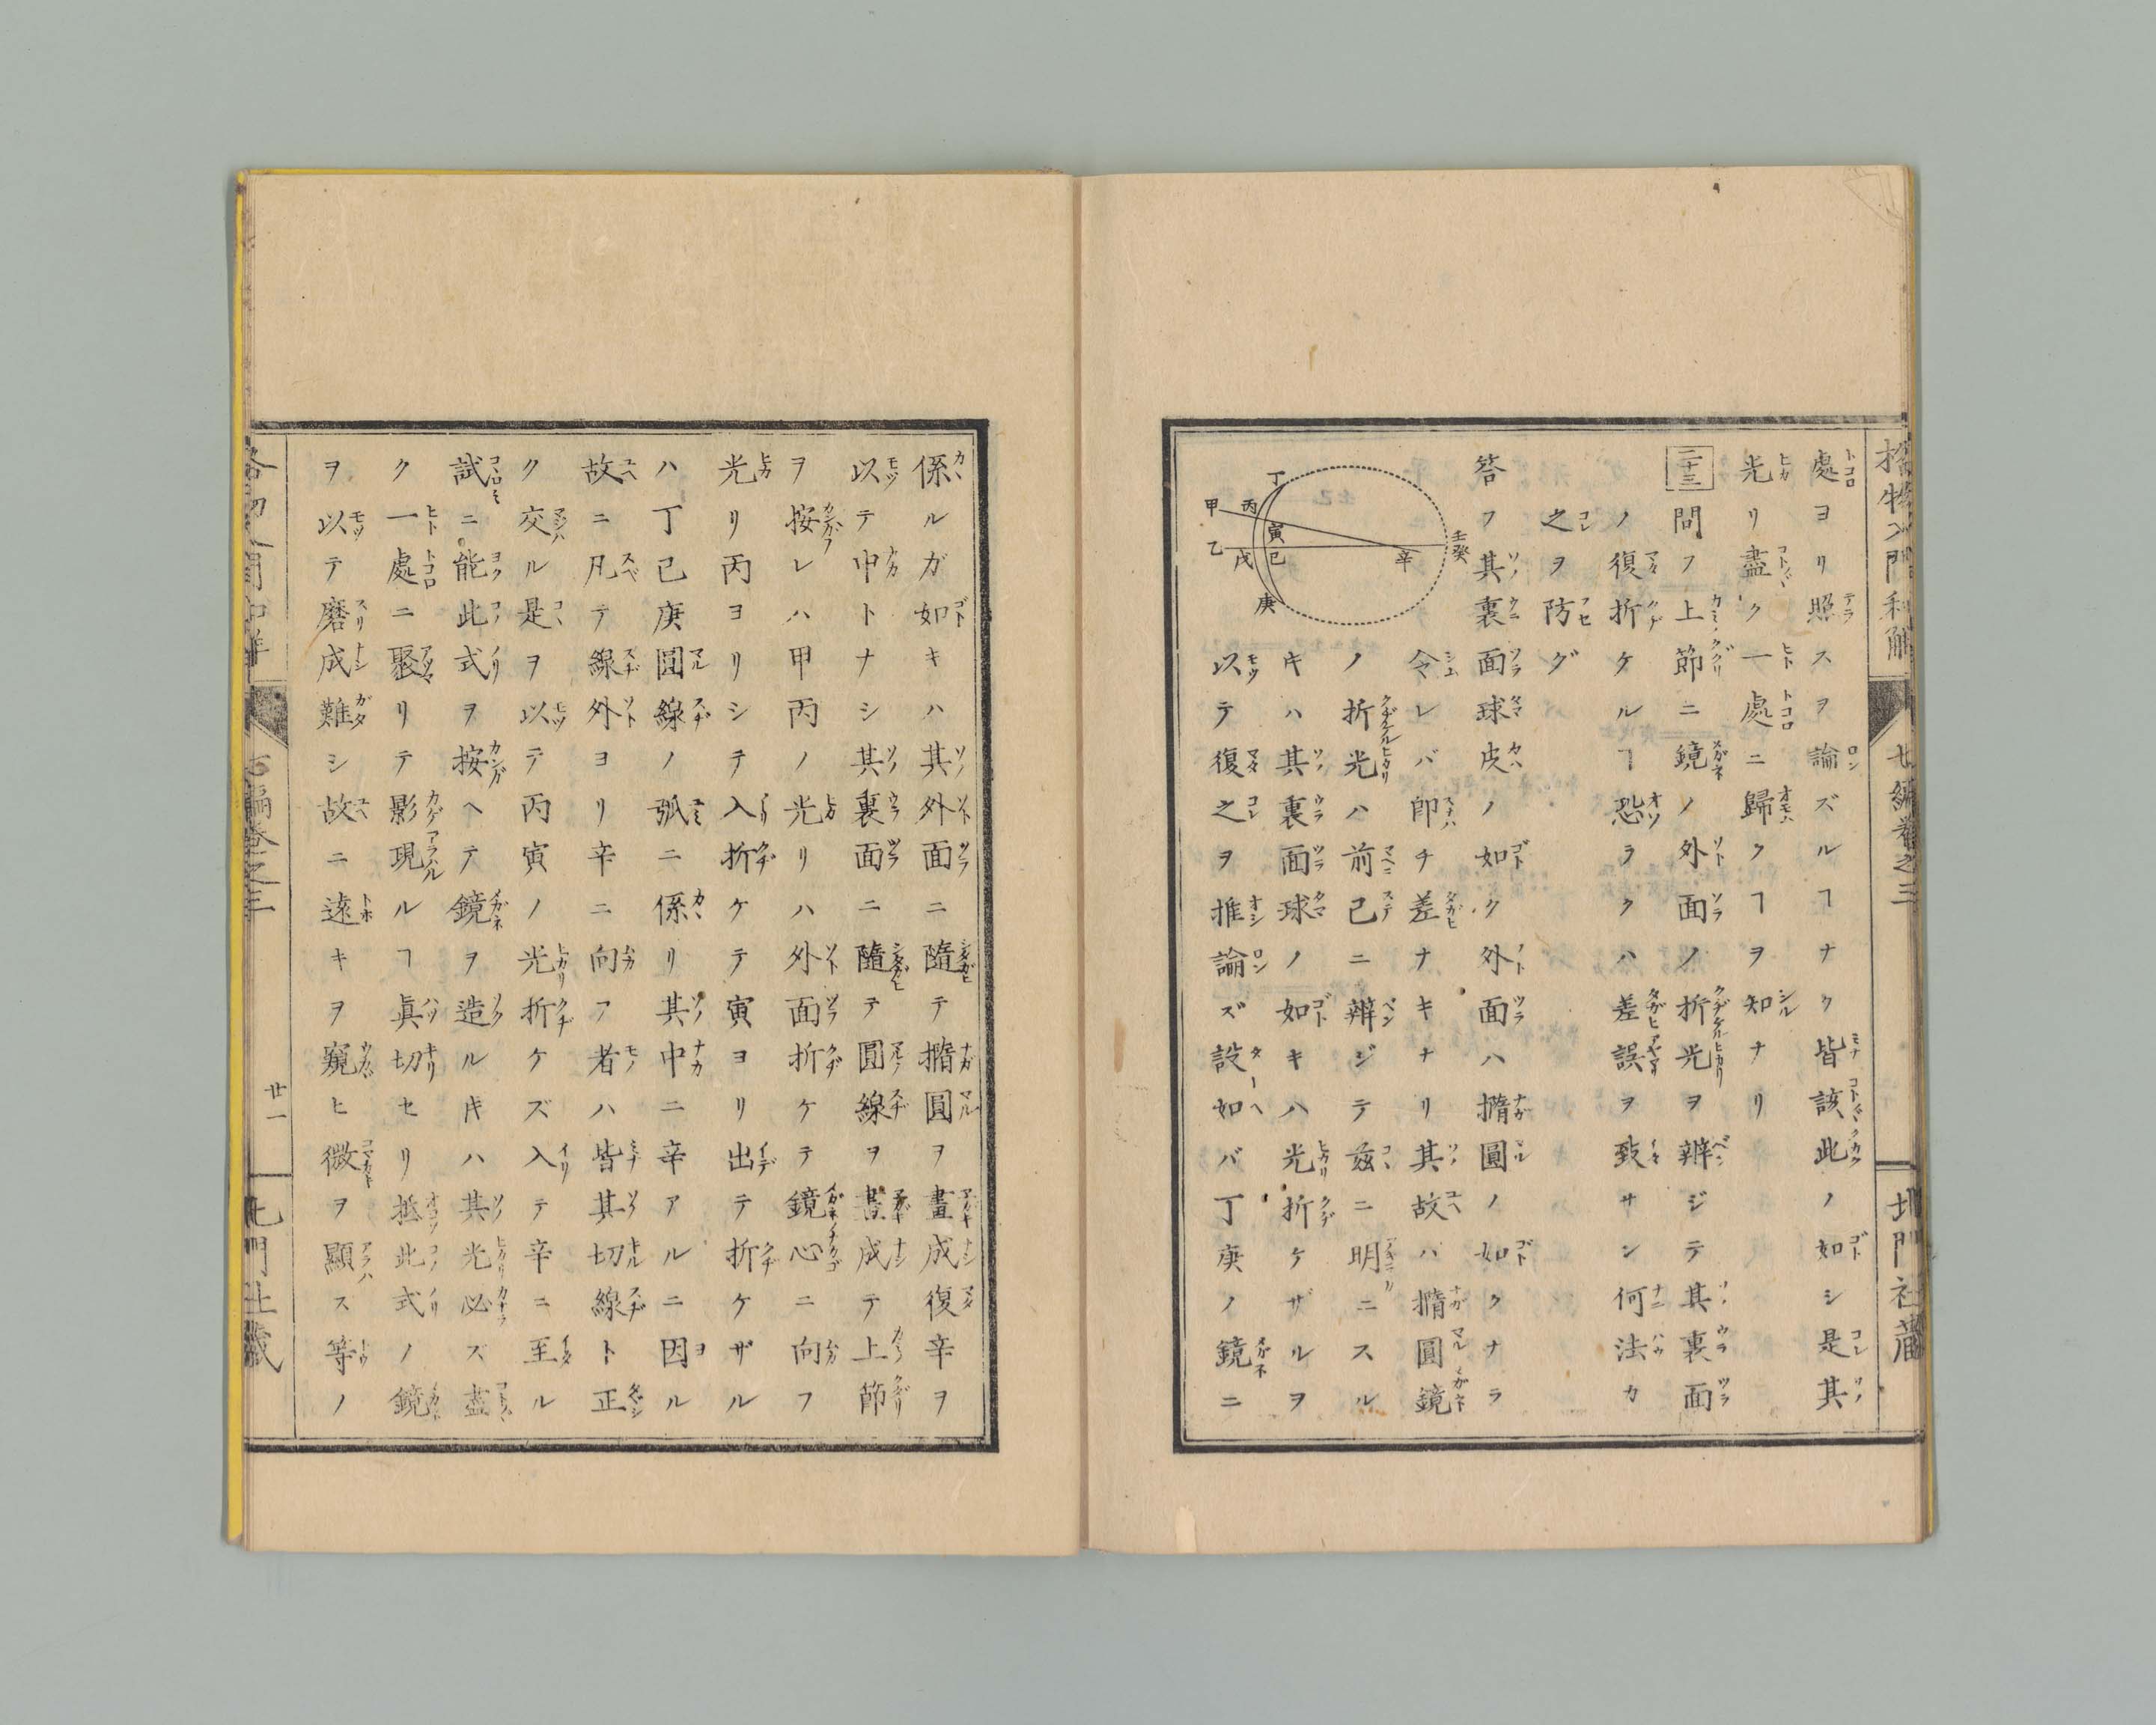 格物入門和解
七編巻之三
北門社蔵
處ヨリ照スヲ論ズルヿナク皆該此ノ如シ是其
光リ盡ク一處ニ歸クヿヲ知ナリ
二十三 問フ上節ニ鏡ノ外面ノ折光ヲ辨ジテ其裏面
ノ復折ケルヿ恐ラクハ差誤ヲ致サン何法カ
之ヲ防グ
答フ其裏面球皮ノ如ク外面ハ撱圓ノ如クナラ
令レバ即チ差ナキナリ其故ハ撱圓鏡
ノ折光ハ前已ニ辨ジテ茲ニ明ニスル
キハ其裏面球ノ如キハ光折ケザルヲ
以テ復之ヲ推論ズ設如バ丁庚ノ鏡ニ
丁
甲 丙
寅
乙 戊 己 辛
壬癸
庚
係ルガ如キハ其外面ニ隨テ撱圓ヲ畫成復辛ヲ
以テ中トナシ其裏面ニ隨テ圓線ヲ畫成テ上節
ヲ按レハ甲丙ノ光リハ外面折ケテ鏡心ニ向フ
光リ丙ヨリシテ入折ケテ寅ヨリ出テ折ケザル
ハ丁己庚圓線ノ弧ニ係リ其中ニ辛アルニ因ル
故ニ凡テ線外ヨリ辛ニ向フ者ハ皆其切線ト正
ク交ル是ヲ以テ丙寅ノ光折ケズ入テ辛ニ至ル
試ニ能此式ヲ按ヘテ鏡ヲ造ルキハ其光必ズ盡
ク一處ニ聚リテ影現ルヿ真切セリ抵此式ノ鏡
ヲ以テ磨成難シ故ニ遠キヲ窺ヒ微ヲ顯ス等ノ
七編巻之三
廿一
北門社蔵